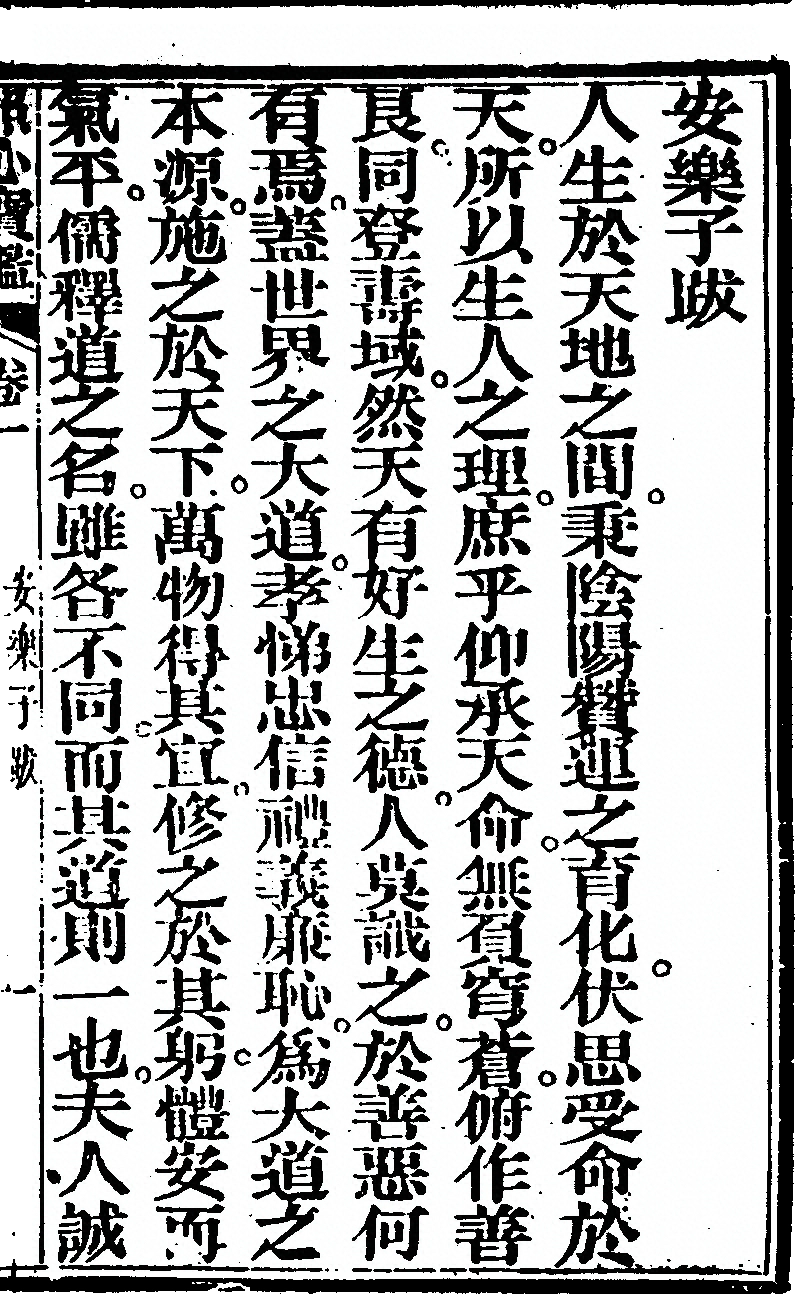 安樂子跋
人生於天地之間。秉陰陽贊運之育化。伏思受命於
天。所以生人之理。庶乎仰承天命。無負穹蒼。俯作善
良。同登壽域。然天有好生之德。人莫識之。於善惡何
有焉。蓋世界之大道。孝悌忠信禮義廉恥。爲大道之
本源。施之於天下。萬物得其宜。修之於其躬。體安而
氣平。儒釋道之名。雖各不同。而其道則一也。夫人誠
卷一
安樂子跋
一